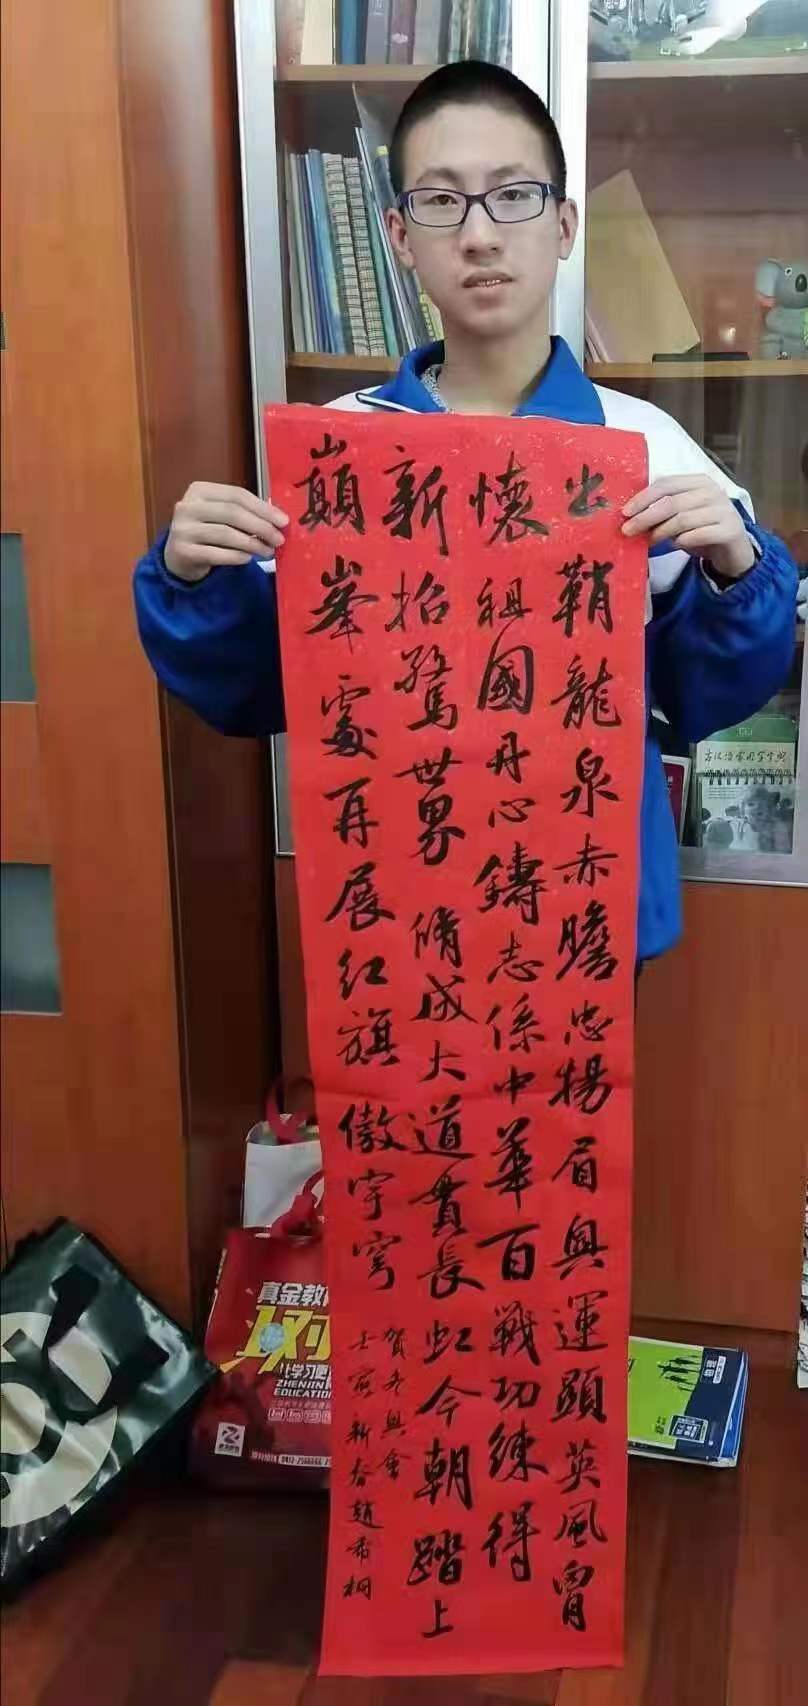 出鞘龍泉赤膽忠揚眉奥運顯英風胷
懷祖國丹心鑄志係中華百戰功練得
新招驚世界脩成大道貫長虹今朝踏上
巔峯處再展红旗傲宇穹
賀冬奥會
壬寅新春趙希桐
古汉语常用字字典
真金教
让学习更
ZHENJIN
EDUCATION